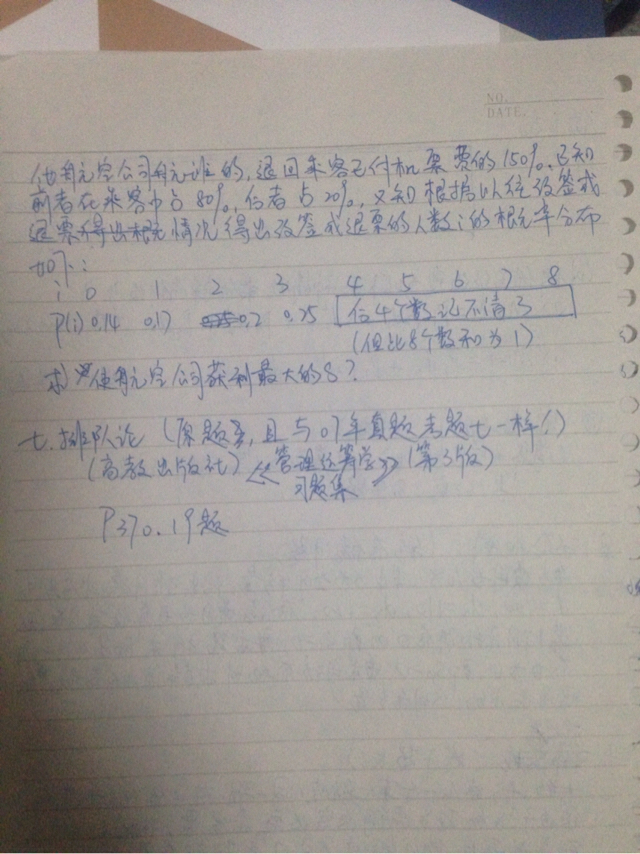 NO.
DATE.
他航空公司航班的,退回乘客已付机票费的150%.已知
前者在乘客中占80%,后者占20%,又知根据以往改签或
退票得出概率情况得出改签或退票的人数i的概率分布
如下:
i 0 1 2 3 4 5 6 7 8
P(i) 0.14 0.17 0.2 0.25 后4个数记不清了
(但此8个数和为1)
求使航空公司获利最大的S?
七.排队论(原题,且与07年真题考题七一样!)
(高教出版社)《管理运筹学》(第3版)
习题集
P370.19题